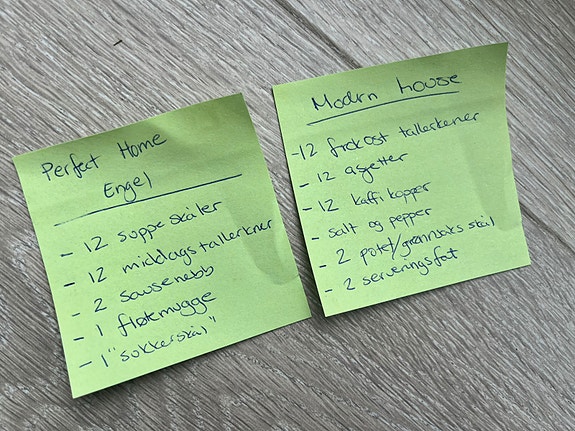 Perfect Home
Engel
- 12 suppe skåler
- 12 middags tallerkner
- 2 sausenebb
- 1 fløtemugge
- 1 "sukkerskål"
Modrn house
- 12 frokost tallerkener
- 12 asjetter
- 12 kaffi kopper
- salt og pepper
- 2 potet/grønnsaks skål
- 2 serveringsfat